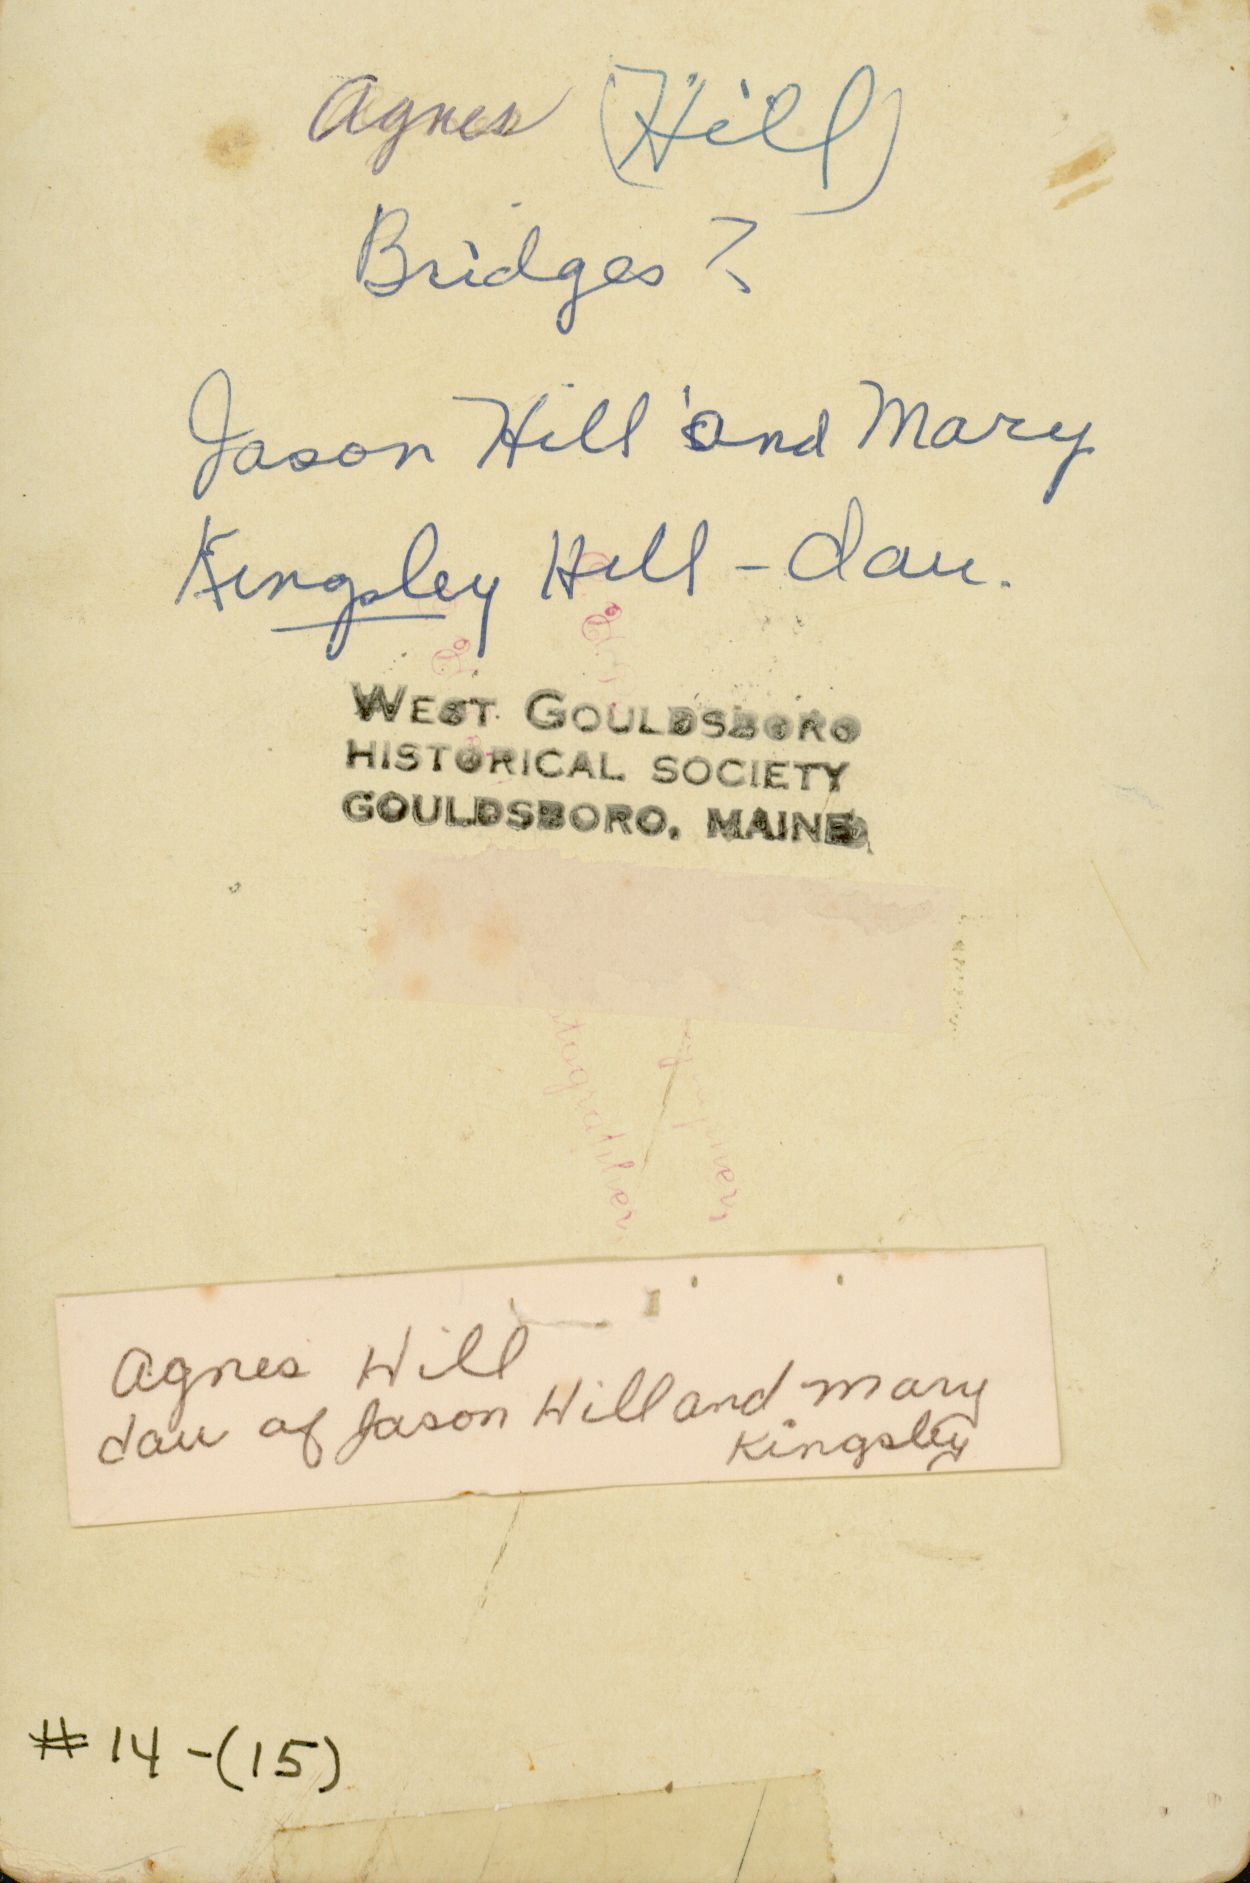 Agnes (Hill)
Bridges?
Jason Hill and Mary
Kingsley Hill - dau.
WEST GOULDSBORO
HISTORICAL SOCIETY
GOULDSBORO, MAINE
Agnes Hill
dau of Jason Hill and Mary
Kingsley
# 14 - (15)